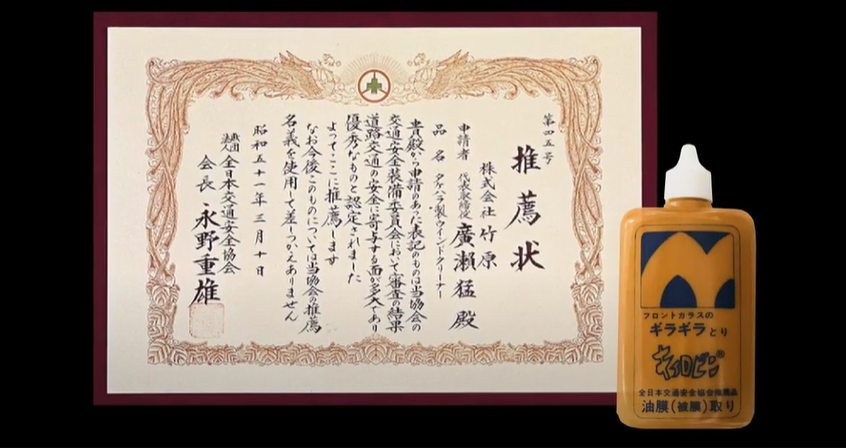 第四五号
推薦状
株式会社 竹原
申請者 代表取締役 廣瀬猛 殿
品名 タケハラ製ウインドクリーナー
貴殿から申請のあった表記のものは当協会の
交通安全装備委員会において審査の結果
道路交通の安全に寄与する面が多大であり
優秀なものと認定されました
よってここに推薦します
なお今後このものについては当協会の推薦
名義を使用して差しつかえありません
昭和五十一年三月十日
財団法人 全日本交通安全協会
会長 永野重雄
フロントガラスの
ギラギラとり
キイロビン®
全日本交通安全協会推薦品
油膜(被膜)取り